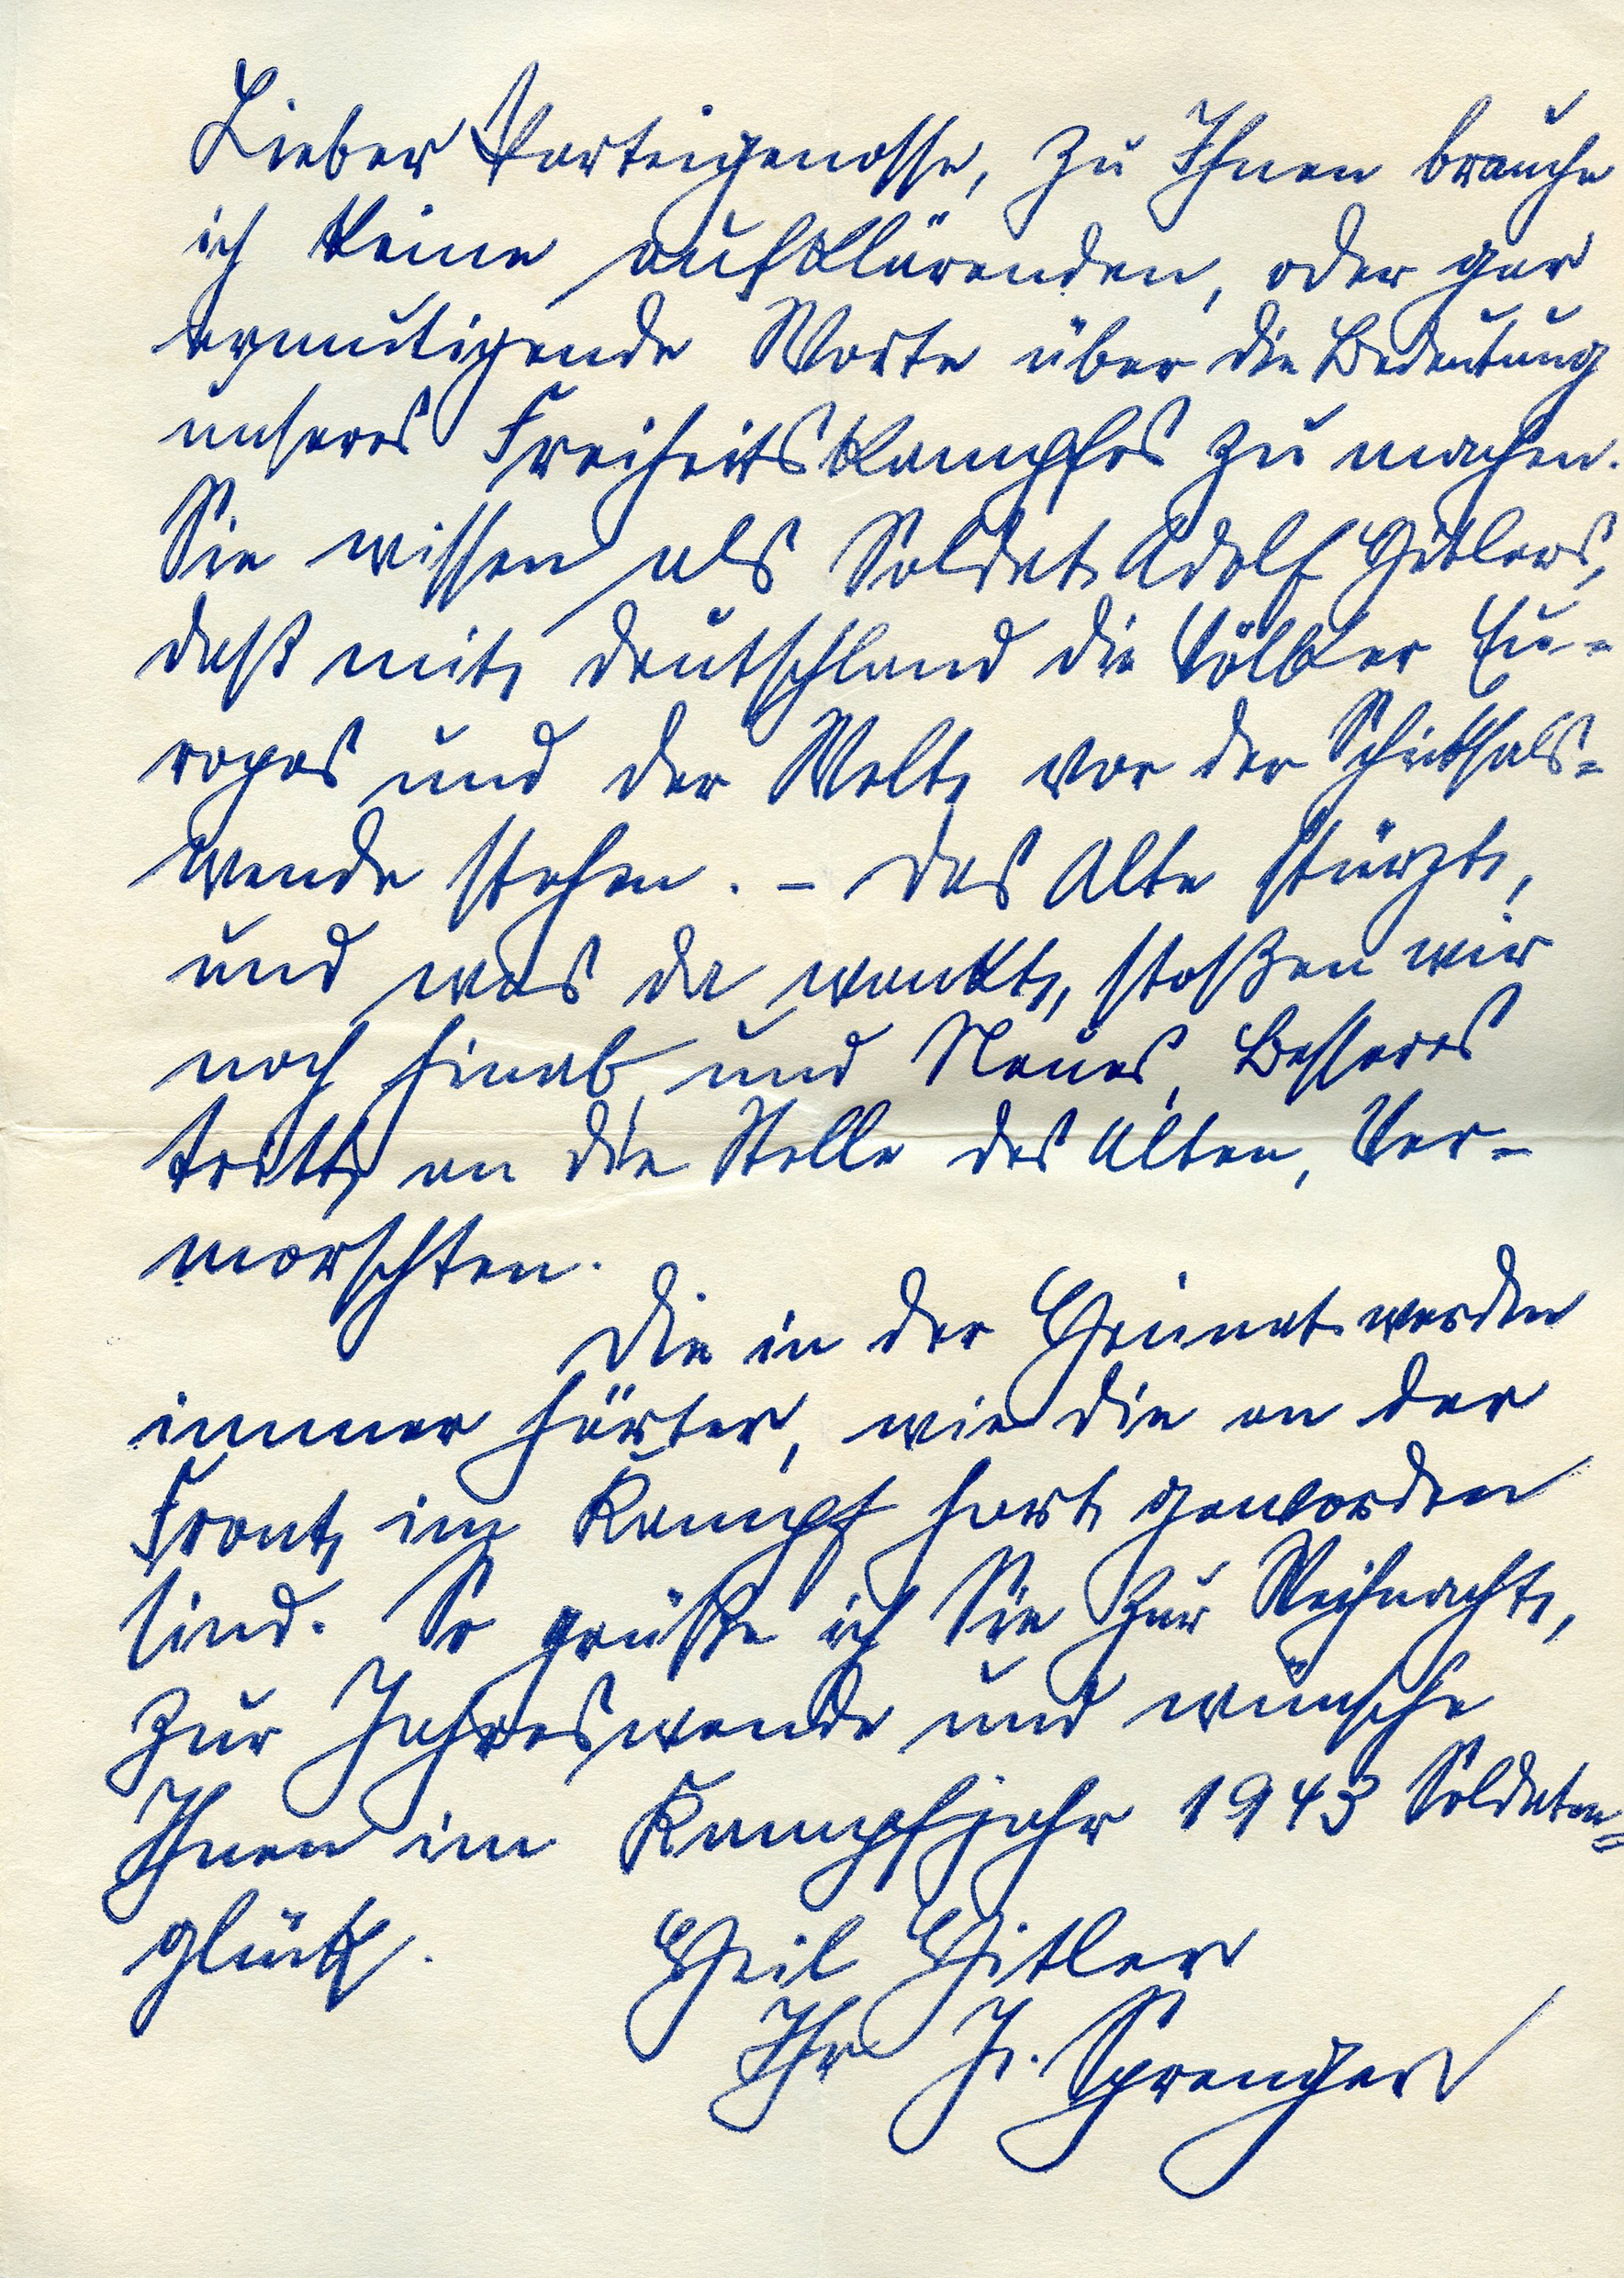 Lieber Parteigenosse, zu Ihnen brauche
ich keine aufklärenden, oder gar
ermutigende Worte über die Bedeutung
unseres Freiheitskampfes zu machen.
Sie wissen als Soldat Adolf Hitlers,
daß mit Deutschland die Völker Eu-
ropas und der Welt vor der Schicksals-
wende stehen. – Das Alte stürzt,
und was da wankt, stoßen wir
noch hinab und Neues, Besseres
tritt an die Stelle des Alten, Ver-
morschten.
Die in der Heimat werden
immer härter, wie die an der
Front im Kampf hart geworden
sind. So grüße ich Sie zur Weihnacht,
zur Jahreswende und wünsche
Ihnen im Kampfjahr 1943 Soldaten-
glück.
Heil Hitler
Ihr J. Sprenger